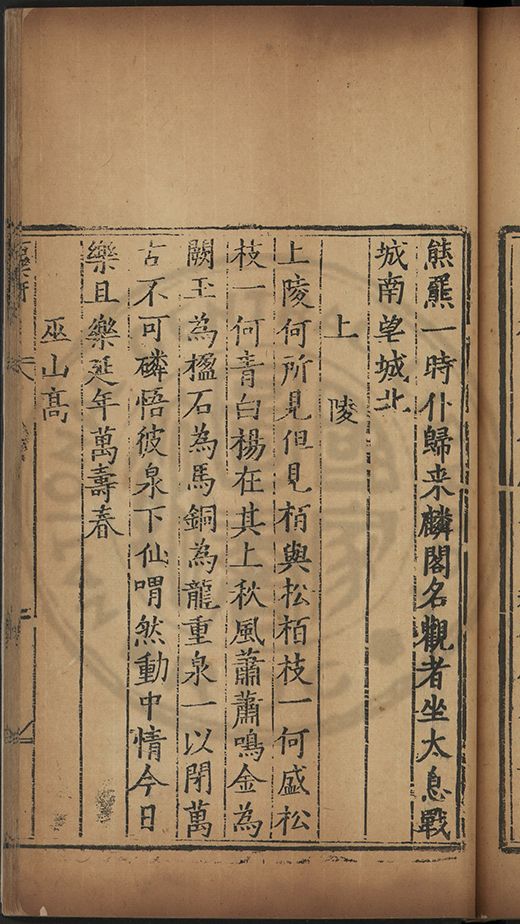 熊羆一時仆歸来麟閣名觀者坐太息戰
城南望城北
上陵
上陵何所見但見栢與松栢枝一何盛松
枝一何青白楊在其上秋風蕭蕭鳴金為
闕玉為楹石為馬銅為龍重泉一以閉萬
古不可磷悟彼泉下仙喟然動中情今日
樂且樂延年萬壽春
巫山髙